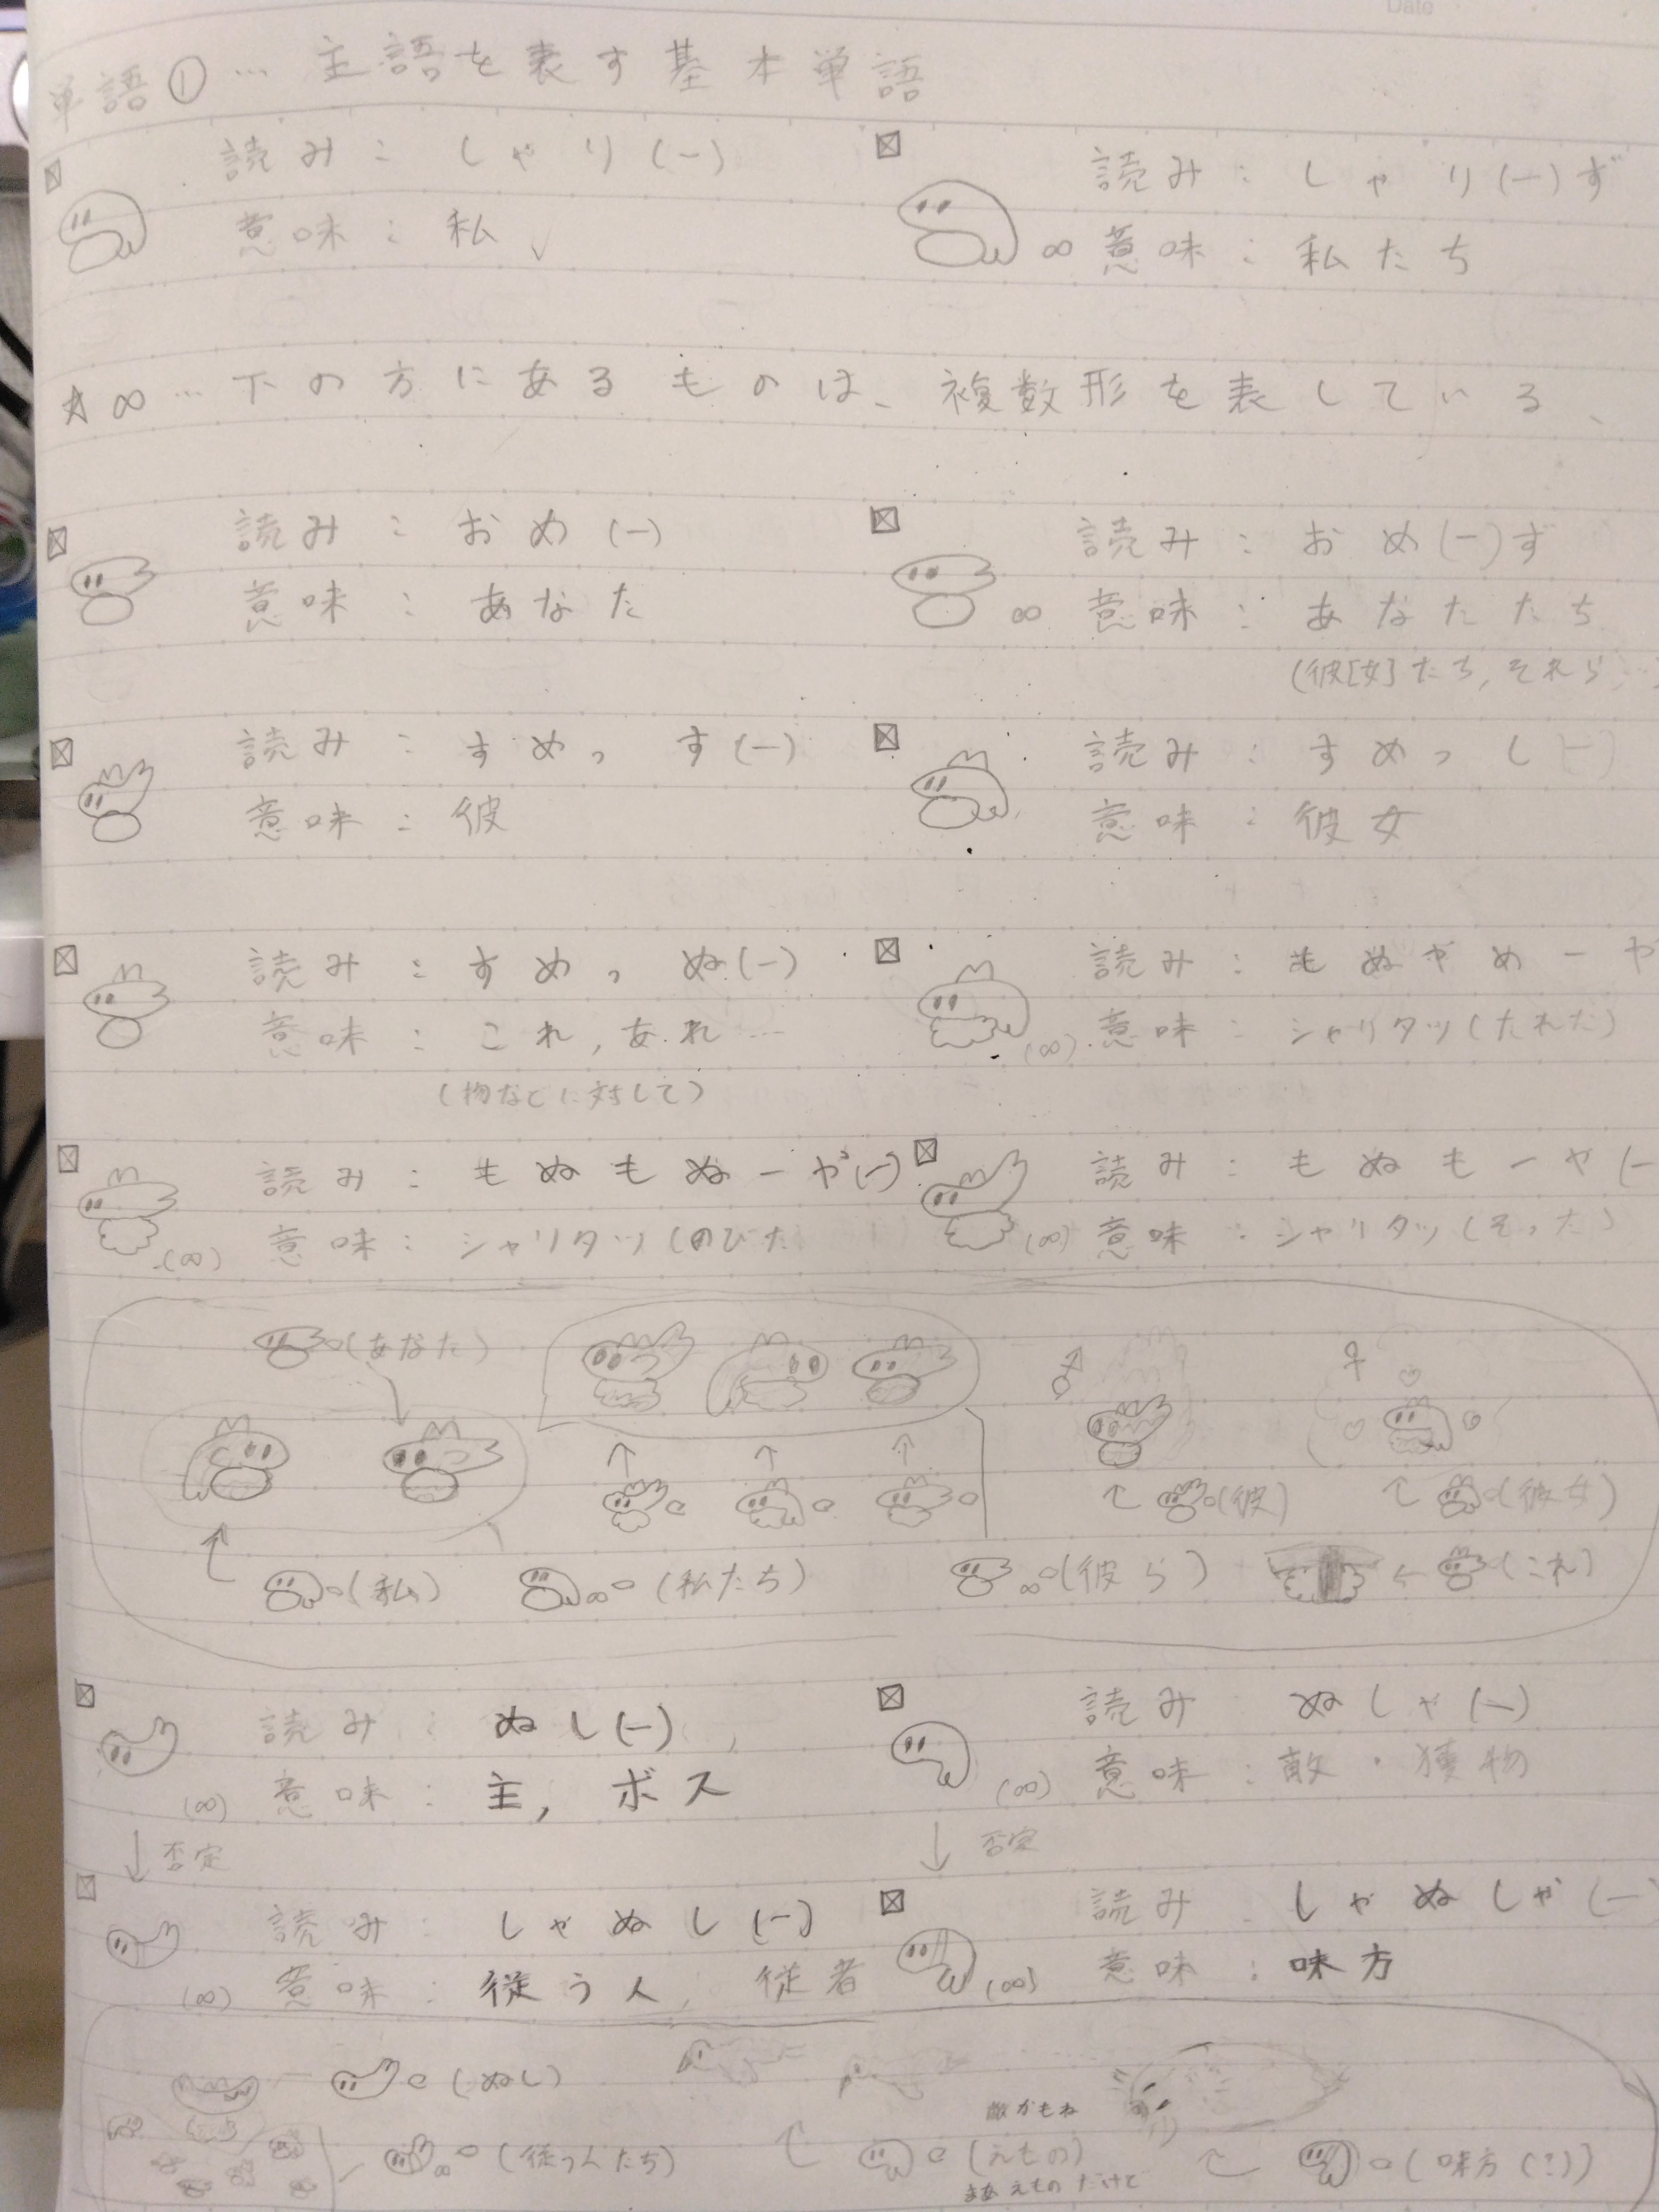 Date
単語① … 主語を表す基本単語
読み：しゃり(ー)
意味：私
読み：しゃり(ー)ず
∞ 意味：私たち
☆ ∞ … 下の方にあるものは、複数形を表している、
読み：おめ(ー)
意味：あなた
読み：おめ(ー)す
∞ 意味：あなたたち
(彼[女]たち,それら
読み：すめっす(ー)
意味：彼
読み：すめっし(ー)
意味：彼女
読み：すめっぬ(ー)
意味：これ,あれ…
(物などに対して)
読み：もぬやめーや
(∞) 意味：シャリタツ(たれた)
読み：もぬもぬーや(ー)
(∞) 意味：シャリタツ(のびた
読み：もぬもーや(ー
(∞) 意味：シャリタツ(そった)
(あなた)
♂ ♀
(彼) (彼女)
(私) ∞ (私たち) ∞(彼ら) ← (これ)
読み：ぬし(ー)
(∞) 意味：主, ボス
読み ぬしゃ(ー)
(∞) 意味：敵・獲物
↓ 否定
↓ 否定
読み：しゃぬし(ー)
(∞) 意味：従う人, 従者
読み しゃぬしゃ(ー)
(∞) 意味：味方
(ぬし)
敵かもね
∞ (従う人たち) (えもの) (味方(?))
まあ えもの だけど